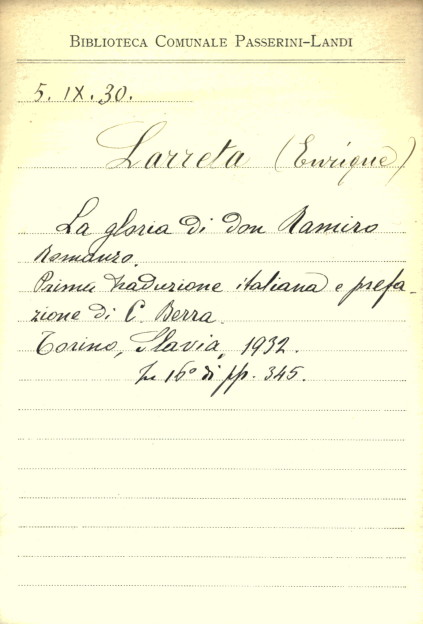 BIBLIOTECA COMUNALE PASSERINI-LANDI
5. IX. 30.
Larreta (Enrique)
La gloria di don Ramiro
Romanzo.
Prima traduzione italiana e prefa-
zione di C. Berra.
Torino, Slavia, 1932.
In 16° di pp. 345.